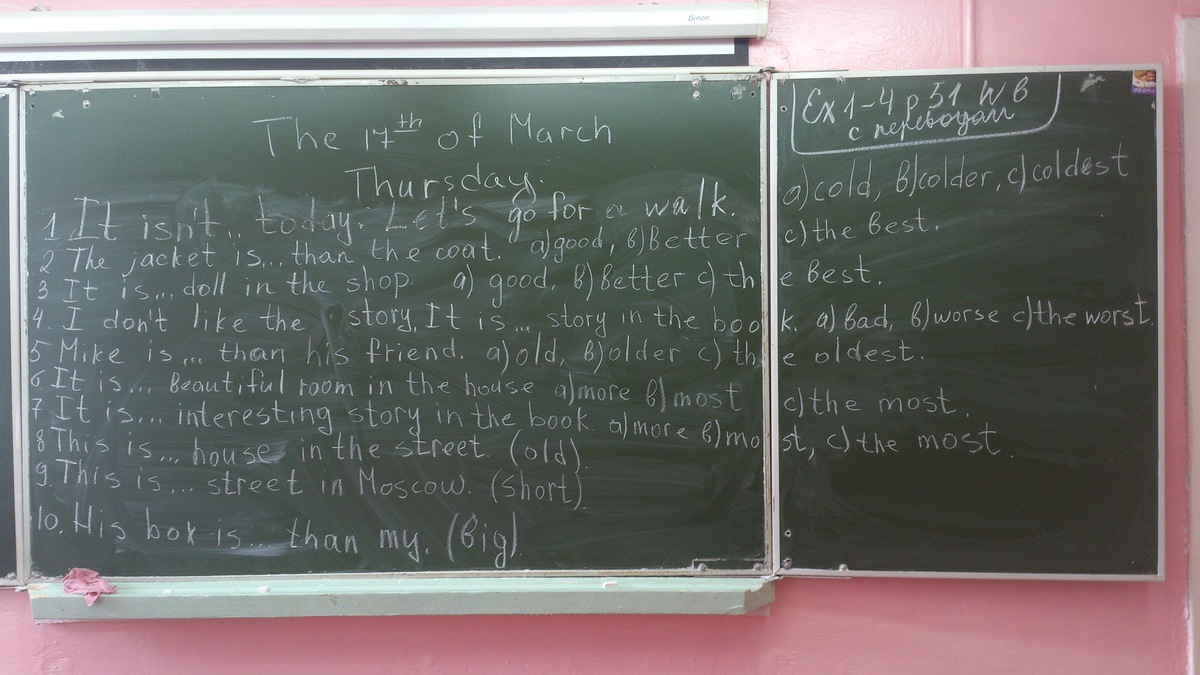 Dinon
The 17th of March
Thursday.
Ex 1-4 p 51 WB
с переводом
1 It isn't... today. Let's go for a walk. a)cold, B)colder, c)coldest
2 The jacket is... than the coat. a)good, B)Better c)the Best.
3 It is... doll in the shop. a) good, B)Better c) the Best.
4. I don't like the story. It is... story in the book. a)Bad, B)worse c)the worst.
5 Mike is... than his friend. a)old, B)older c) the oldest.
6 It is... Beautiful room in the house a)more B)most c)the most.
7 It is... interesting story in the book. a)more B)most, c)the most.
8 This is... house in the street. (old).
9. This is... street in Moscow. (short).
10. His box is... than my. (Big).